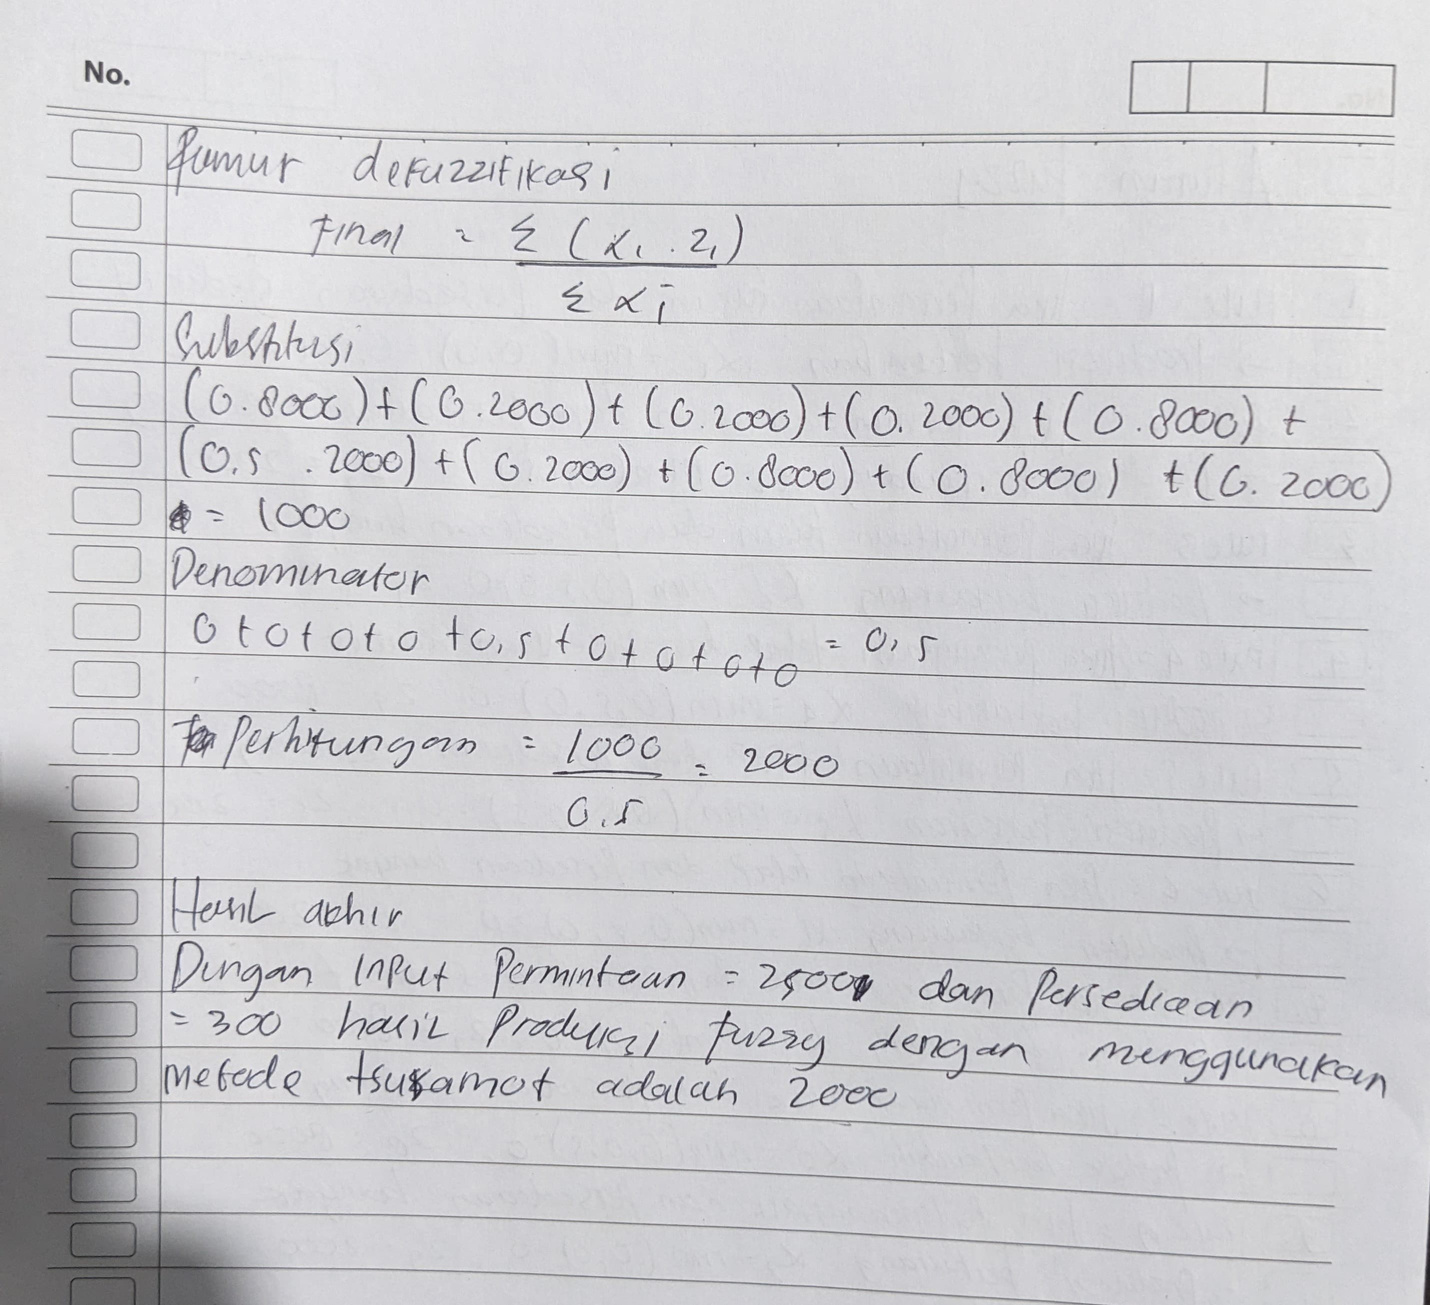 No.
Rumur defuzzifikasi
Final = Σ (αi . zi)
Σ αi
Substitusi
(0.8000)+(0.2000)+(0.2000)+(0.2000)+(0.8000)+
(0,5 .2000)+(0.2000)+(0.8000)+(0.8000)+(0.2000)
= 1000
Denominator
0+0+0+0+0,5+0+0+0+0 = 0,5
Perhitungan = 1000 = 2000
0.5
Hasil akhir
Dengan Input Permintaan = 2500 dan Persediaan
= 300 hasil Produksi fuzzy dengan menggunakan
metode tsukamot adalah 2000